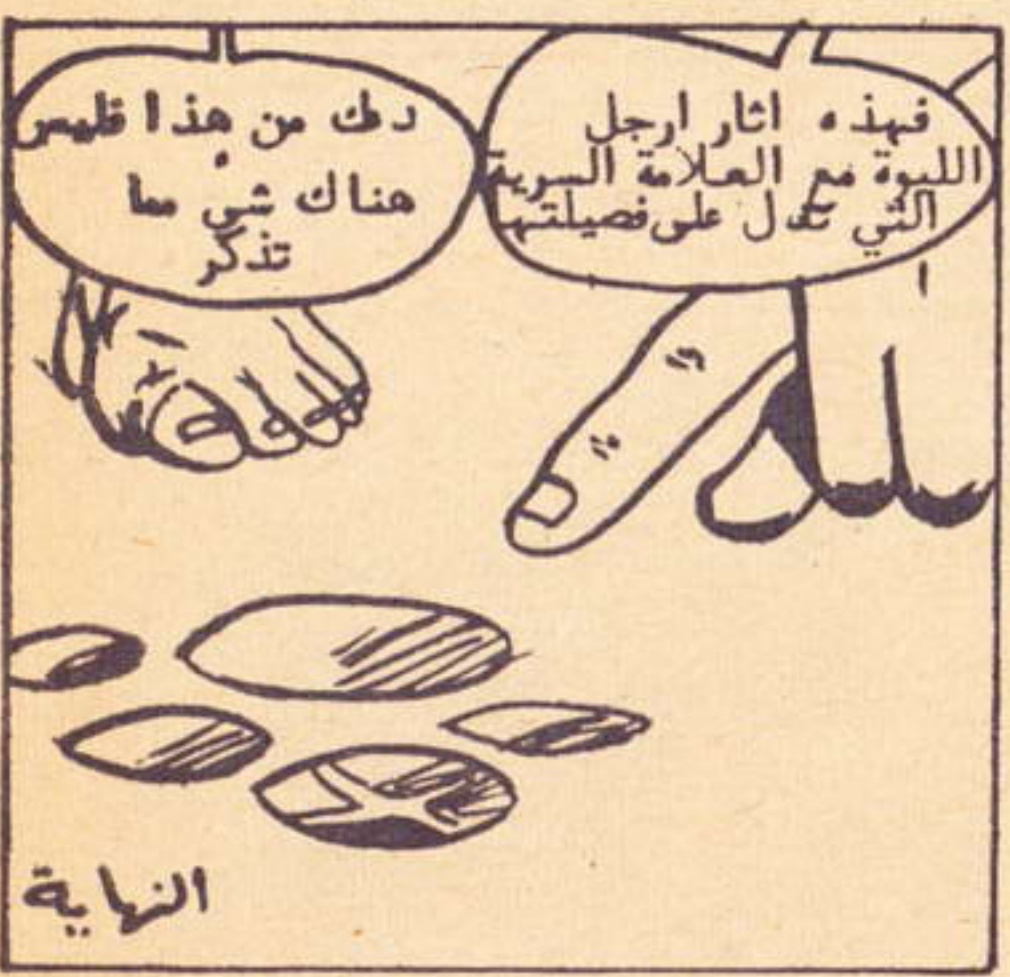 فهذه اثار ارجل
اللبوة مع العلامة السرية
التي تدل على فصيلتها
دعك من هذا فليس
هناك شي مما
تذكر
النهاية